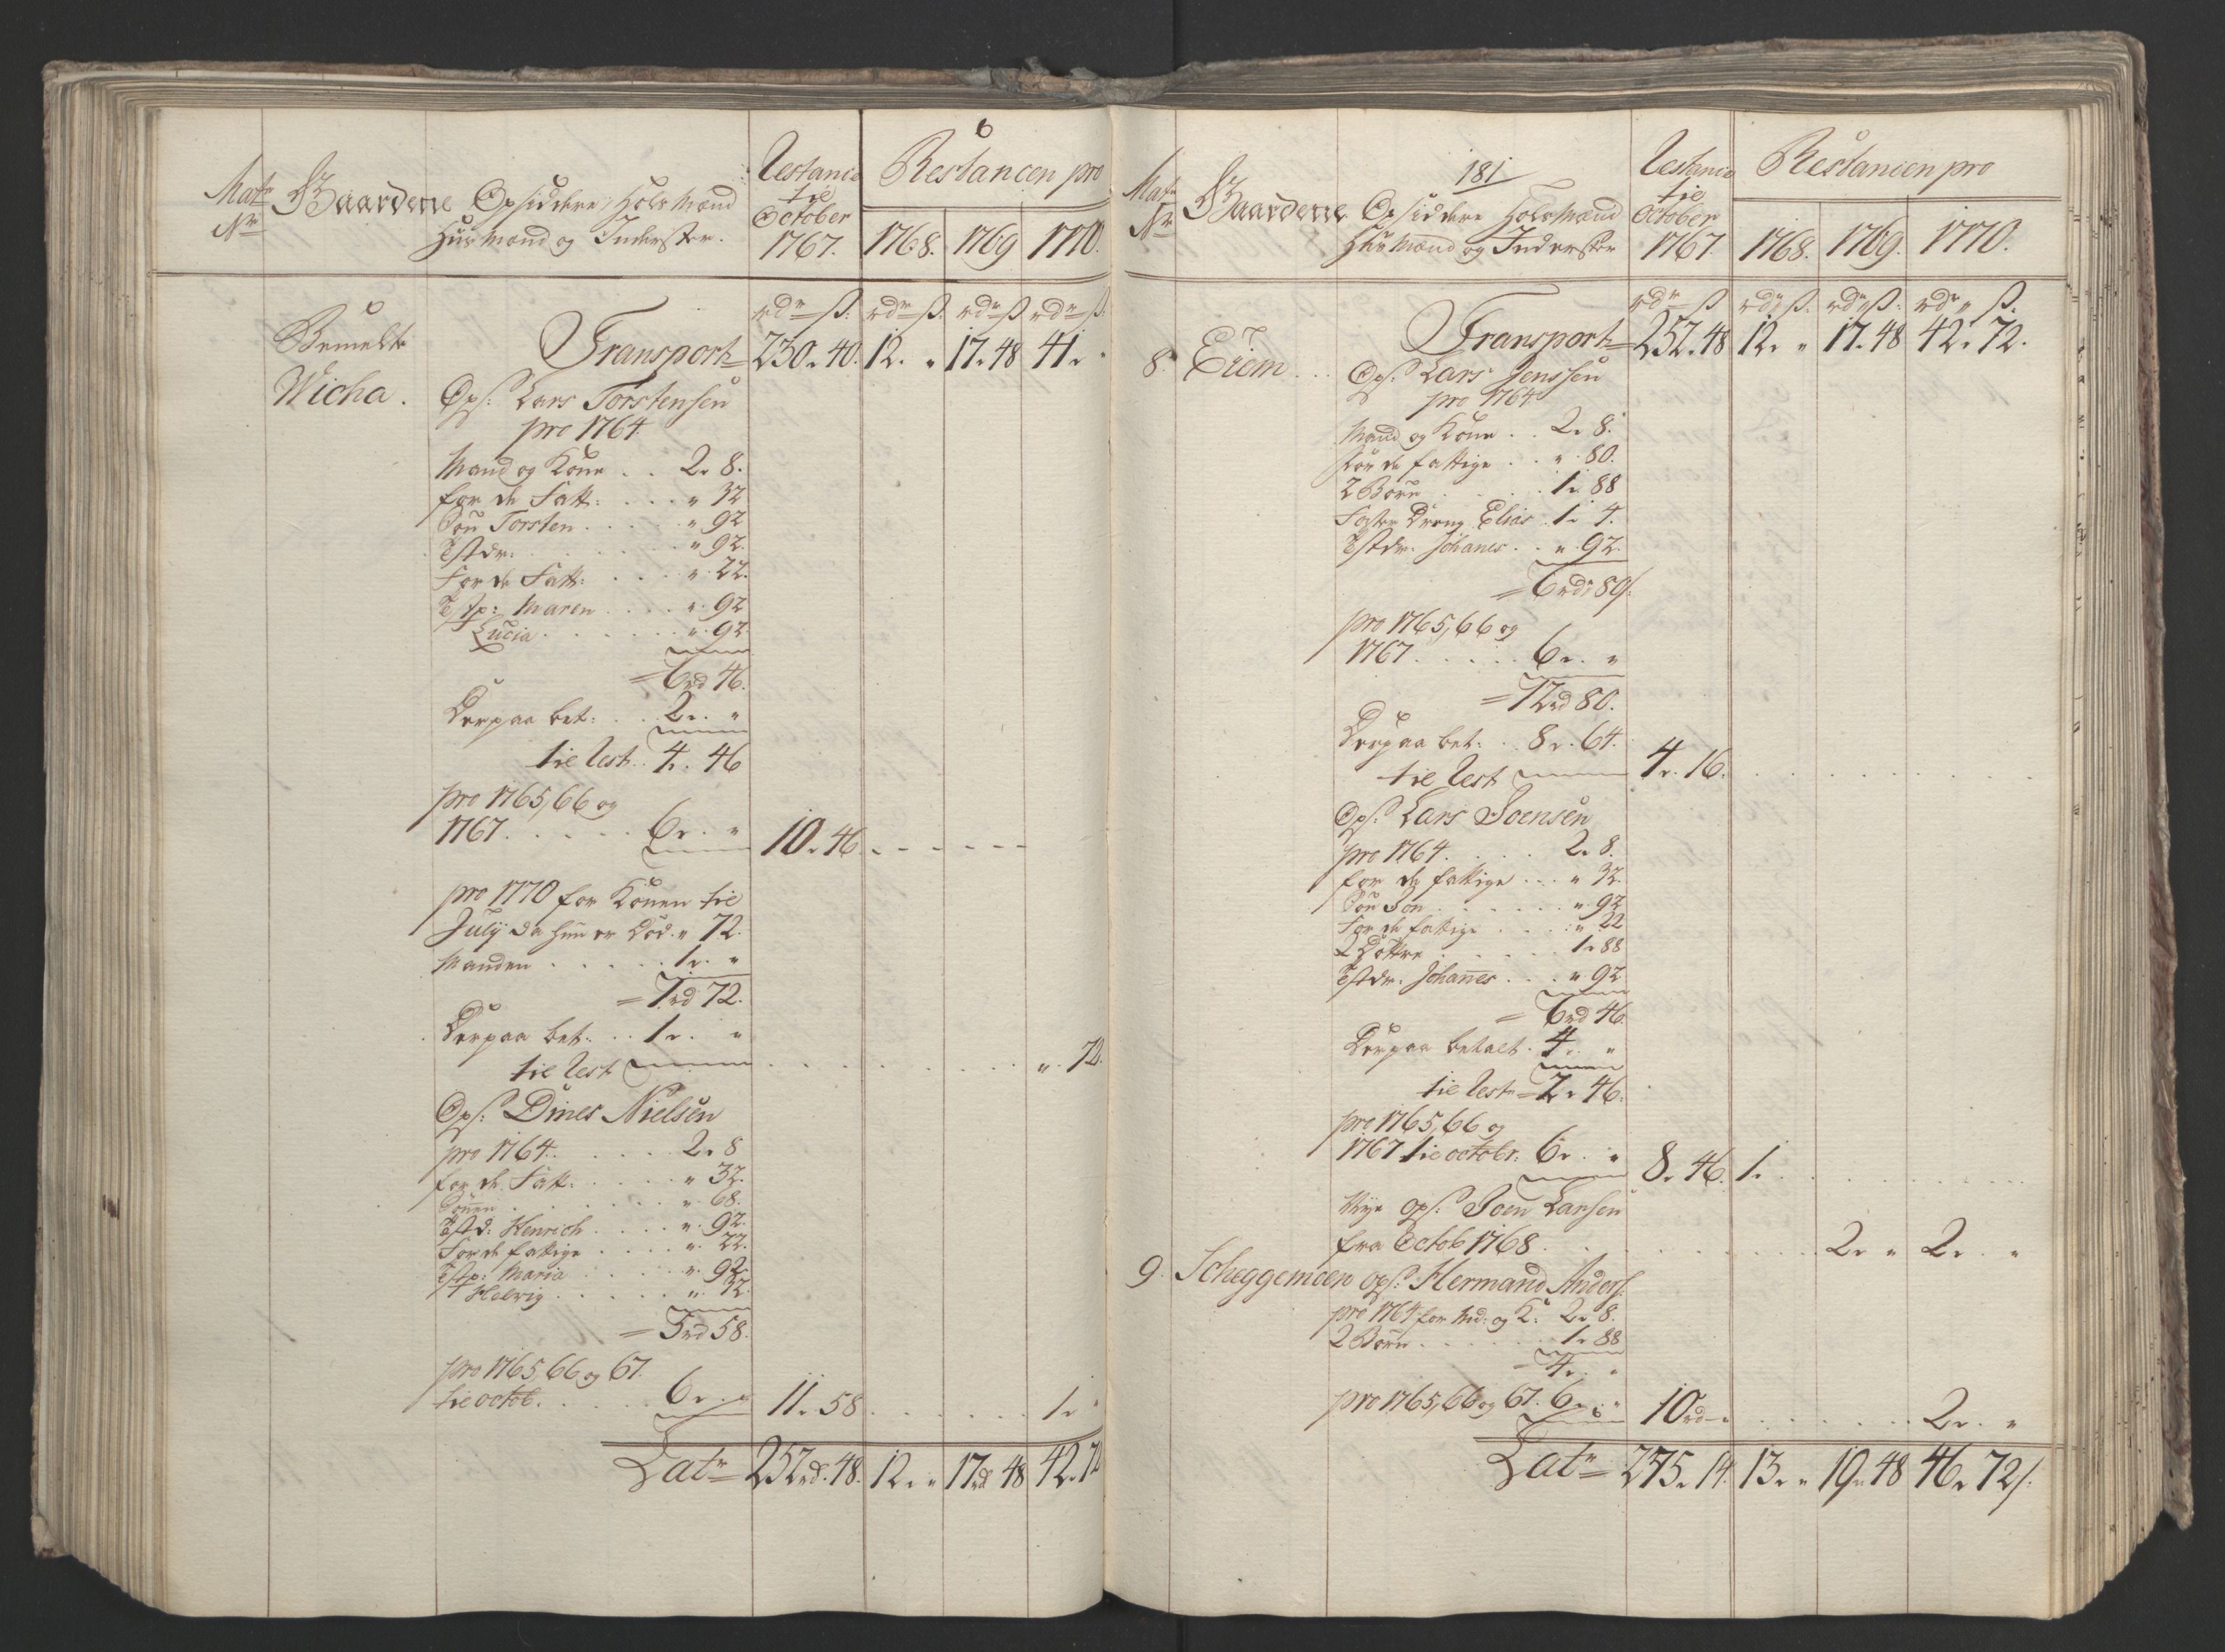 Matr Nr
Gaardene
Opsiddere, Holsmænd
Huusmænd og Inderster.
Restance
til
October
1767.
Restancen pro
1768. 1769 1770.
rdr ß. rdr ß. rdr ß rdr ß.
Bemelte Transport 230 " 40. 12. " 17 " 48 41 " "
Wicha.
Ops: Lars Torstensen
pro 1764.
Mand og Kone . . 2 " 8.
for de Fatt: . . . " 32
Søn Torsten . . . . " 92
Tstdr. . . . . " 92.
For de Fatt: . . . " 22.
Tstp: Maren . . . . " 92
Lucia . . . . . " 92
= 6rd 46.
Derpaa bet: . . 2 " "
til Rest . 4 " 46
pro 1765, 66 og
1767. . . . . 6 " " 10 " 46
pro 1770 for Konen til
July da hun er Død . " 72.
Manden . . . . . 1 " "
= 1rd 72.
Derpaa bet: . . 1 " "
til Rest . . . . " 72.
Ops: Dines Nielsen
pro 1764. . . . . 2 " 8
for de Fatt: . . . . " 32.
Sønnen . . . . . " 68.
Tstd: Henrich . . . . " 92.
For de fattige . . . . " 22.
Tstp: Maria . . . . " 92
Helvig . . . . . " 32.
= 5rd 58.
pro 1765, 66 og 67.
til octob. . . . . 6 " " 11 " 58 . . . . 1 " "
Latr 252rd. 48. 12 " " 17rd 48 42 " 72
181
Matr Nr
Gaardene
Opsiddere Holsmænd
Huusmænd og Inderster
Restance
til
October
1767.
Restancen pro
1768. 1769. 1770.
rdr ß rdr ß. rdr ß. rdr " ß.
Transport 252 " 48 12 " " 17 " 48 42 " 72.
8. Eriem . . Ops: Lars Jenssen
pro 1764
Mand og Kone . . 2 " 8.
for de fattige . . " 80.
2 Børn . . . . 1 " 88
Foster Dreng Elias . 1 " 4.
Tstdr. Johanes . . " 92.
= 6rdr 80ß.
pro 1765, 66 og
1767 . . . . . 6 " "
= 12rd 80.
Derpaa bet: . . 8 " 64.
til Rest 4 " 16.
Ops: Lars Joensen
pro 1764. . . . . 2 " 8.
for de fattige . . . " 32.
Søn Jon . . . . . " 92
For de fattige . . . . " 22
2 Døttre . . . . . 1 " 88
Tstdr. Johannes . . . " 92
= 6rd 46.
Derpaa betalt . 4 " "
til Rest = 2 " 46.
pro 1765, 66 og
1767 til octobr: 6 " " 8 " 46. 1 "
Nye ops: Joen Larsen
fra Octob 1768 . . . . 2 " " 2 " "
9. Scheggemoen ops: Hermand Anders:
pro 1764 for Md: og K: 2 " 8.
2 Børn . . . . . 1 " 88
4 " "
pro 1765, 66 og 67. 6 " " 10rd " . . . . 2 " "
Latr 275 " 14. 13 " " 19 " 48 46 " 72ß.